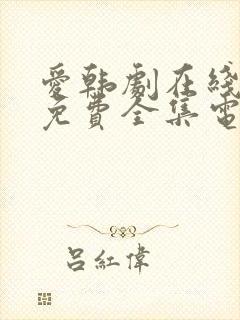 愛韩劇在綫
免費全集電
吕紅偉